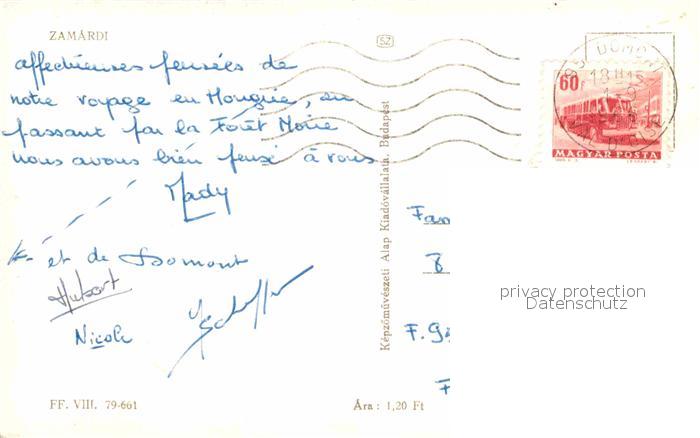 ZAMÁRDI
SZ
affectueuses pensées de
notre voyage en Hongrie, en
passant par la Forêt Noire
nous avons bien pensé à vous
Mady
et de Domont
Hubert
Nicole
60f
MAGYAR POSTA
Képzőművészeti Alap Kiadóvállalata, Budapest
privacy protection
Datenschutz
FF. VIII. 79-661
Ára : 1,20 Ft